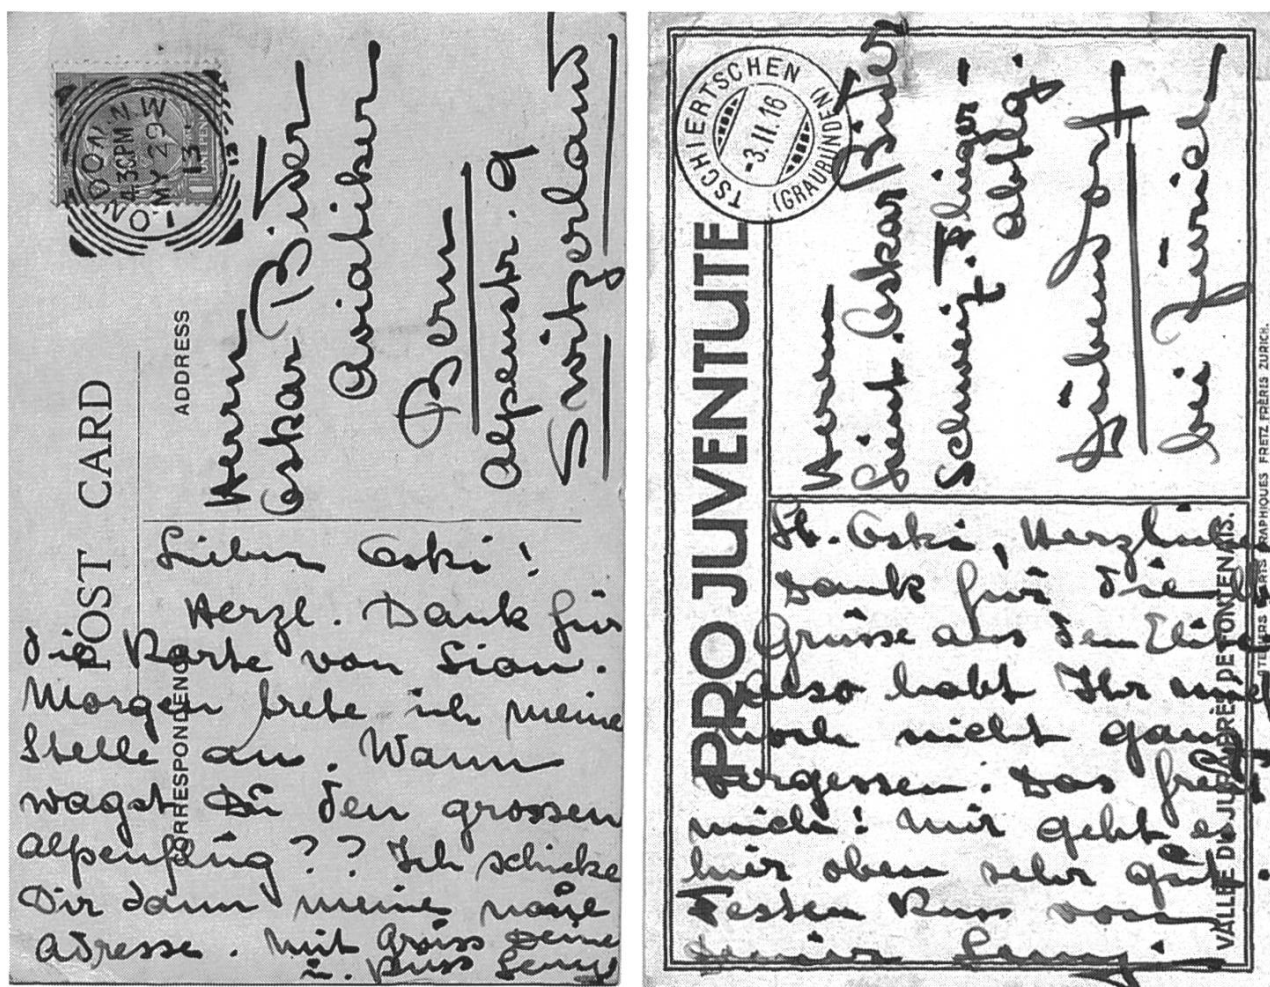 POST CARD
ADDRESS
CORRESPONDENCE
LONDON W
4.30PM
MY 29
13
Herrn
Oskar Bider
Aviatiker
Bern
Alpenstr. 9
Switzerland
Lieber Oski!
Herzl. Dank für
die Karte von Sion.
Morgen trete ich meine
Stelle an. Wann
wagst Du den grossen
Alpenflug?? Ich schicke
Dir dann meine neue
Adresse. Mit Gruss Deine
u. Kuss Leny
PRO JUVENTUTE
TSCHIERTSCHEN
-3.II.16
(GRAUBÜNDEN)
Herrn
Lieut. Oskar Bider
Schweiz. Flieger-
abtlg.
Dübendorf
bei Zürich
Lb. Oski, Herzlichen
Dank für die
Grüsse aus dem
Also habt Ihr mich
noch nicht ganz
vergessen. Das freut
mich! Mir geht es
hier oben sehr gut.
Festen Kuss von
Deiner Leny.
VALLÉE DU JURA PRÈS DE FONTENAIS.
ARTS GRAPHIQUES FRETZ FRÈRES ZURICH.